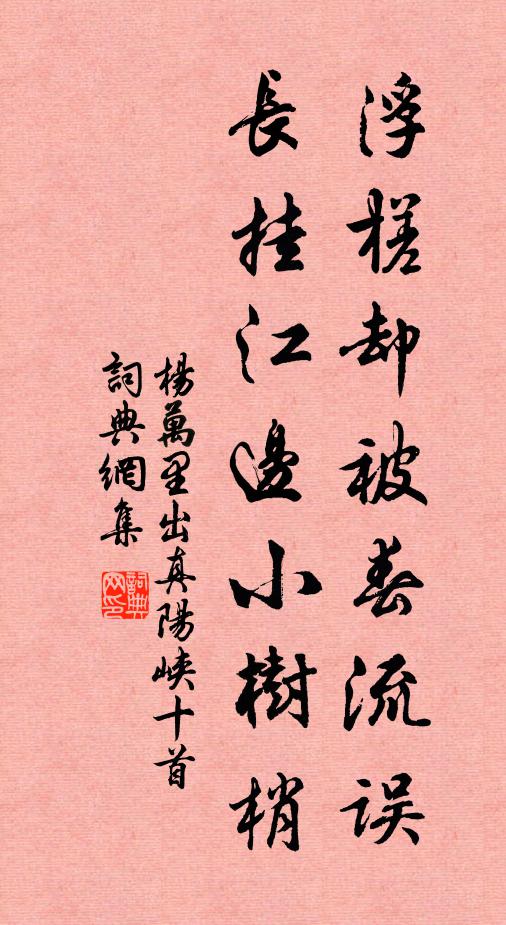 浮槎却被春流误
長挂江邊小樹梢
楊萬里出真陽峽十首
詞典網集
詞典网印